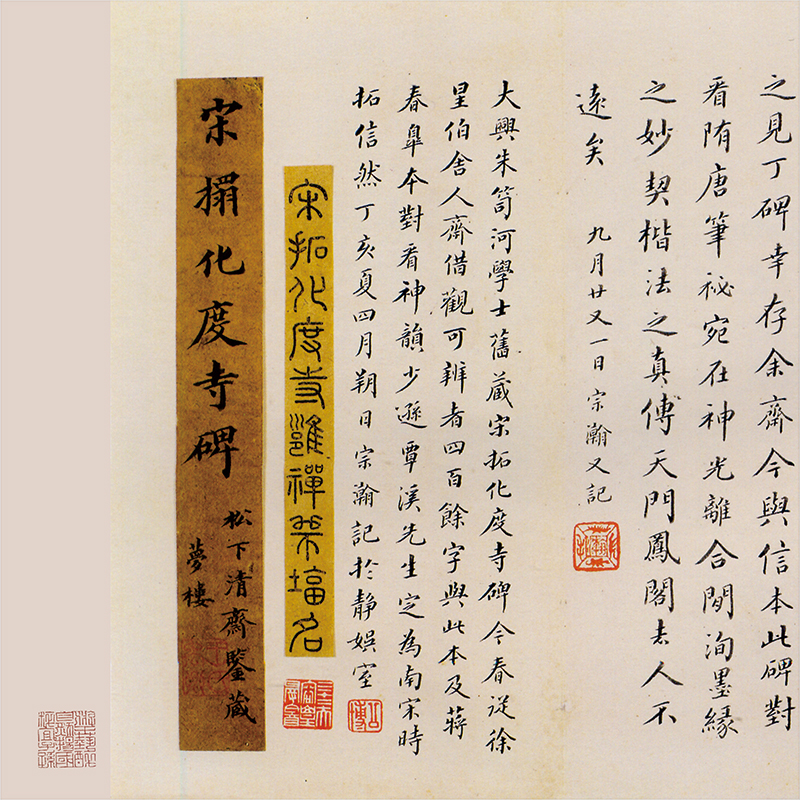 之見丁碑幸存余齋今與信本此碑對
看隋唐筆祕宛在神光離合閒洵墨緣
之妙契楷法之真傳天門鳳閣去人不
遠矣 九月廿又一日宗瀚又記
大興朱笥河學士舊藏宋拓化度寺碑今春從徐
星伯舍人齋借觀可辨者四百餘字與此本及蔣
春皐本對看神韻少遜覃溪先生定為南宋時
拓信然丁亥夏四月朔日宗瀚記於靜娛室
宋拓化度寺邕禪師塔名
宋搨化度寺碑
松下清齋鑒藏
夢樓